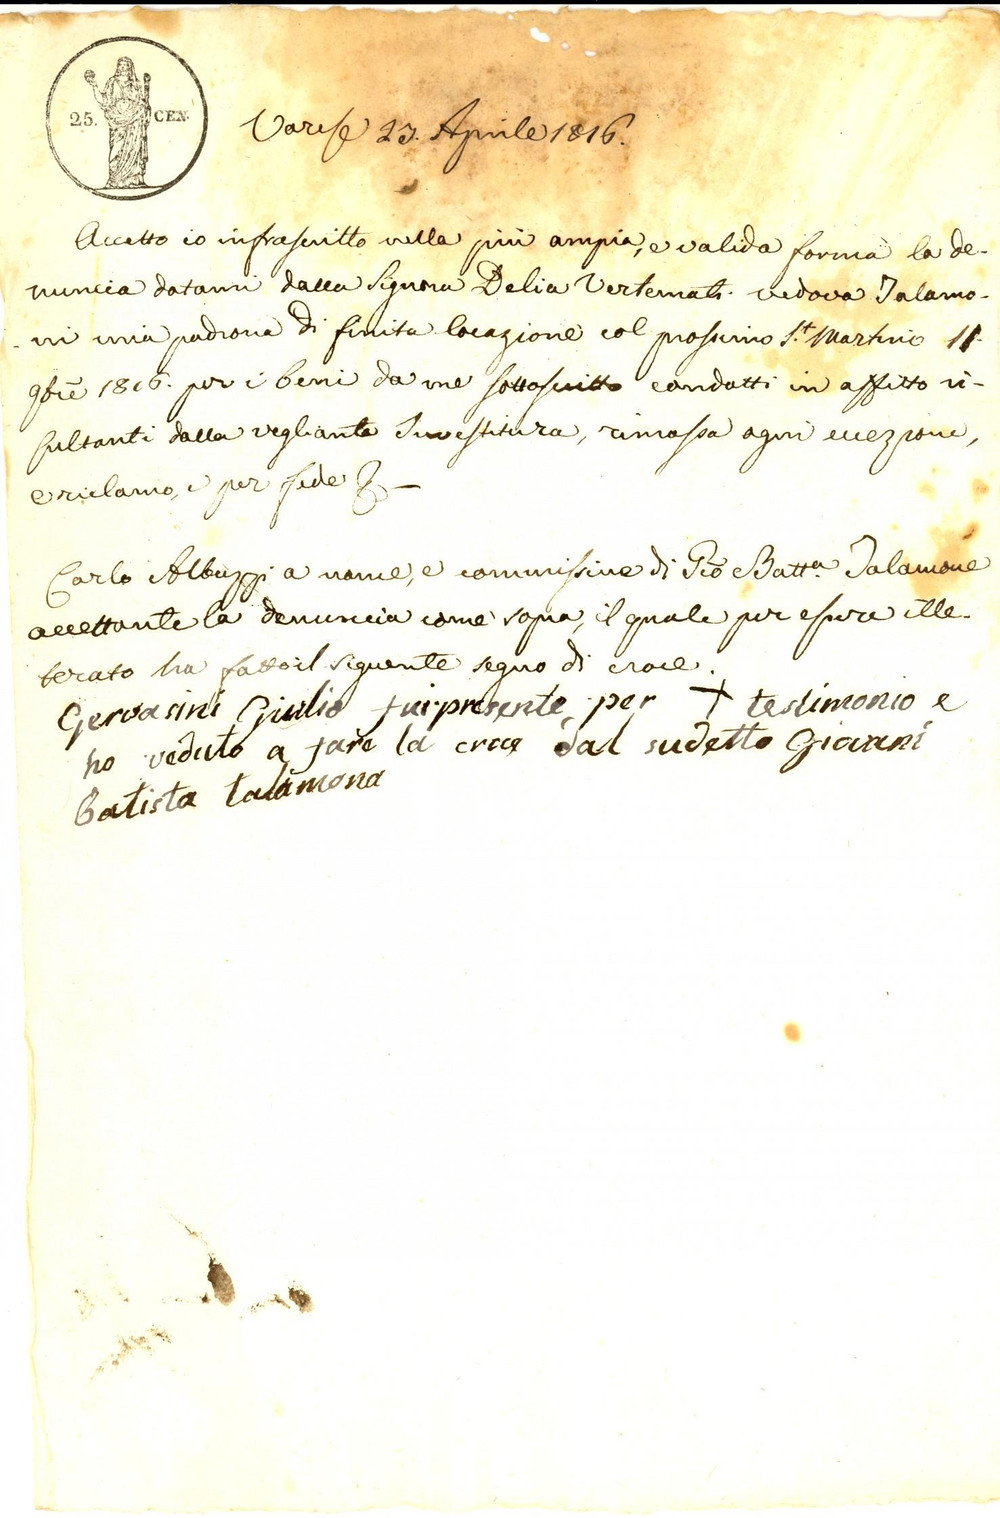 25. CEN.
Varese 23. Aprile 1816.
Accetto io infrascritto nella più ampia, e valida forma la de-
nuncia datami dalla Signora Delia Vertemati vedova Talamo-
ni mia padrona di finita locazione col prossimo S.t Martino 11.
9bre 1816. per i beni da me sottoscritto condotti in affitto ri-
sultanti dalla vegliante Investitura, rimossa ogni eccezione,
e riclamo, e per fede
Carlo Albuzzi a nome, e commissione di Gio Batta. Talamone
accettante la denuncia come sopra, il quale per essere ille-
terato ha fatto il seguente segno di croce.
Gervasini Giulio fui presente per + testimonio e
ho veduto a fare la croce dal sudetto Giovani
Batista talamona